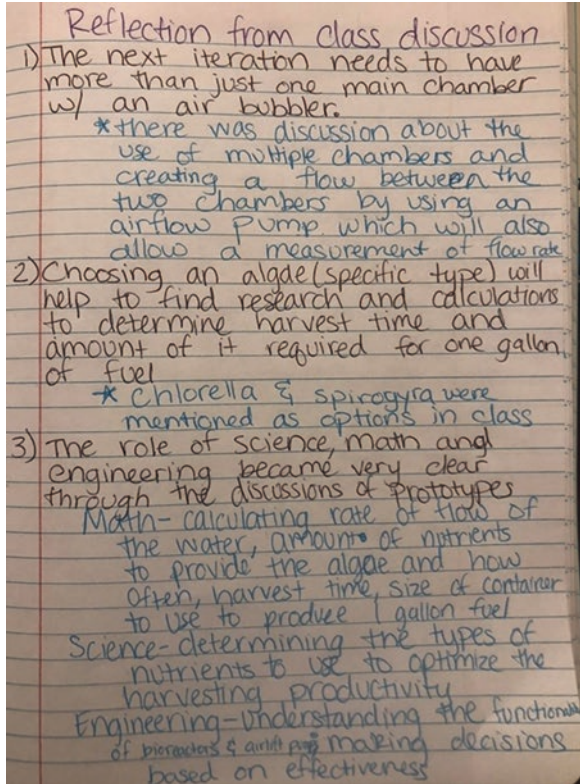 Reflection from class discussion
1) The next iteration needs to have
more than just one main chamber
w/ an air bubbler.
* there was discussion about the
use of multiple chambers and
creating a flow between the
two chambers by using an
airflow pump which will also
allow a measurement of flow rate
2) Choosing an algae (specific type) will
help to find research and calculations
to determine harvest time and
amount of it required for one gallon
of fuel
* Chlorella & spirogyra were
mentioned as options in class
3) The role of science, math and
engineering became very clear
through the discussions of prototypes
Math- calculating rate of flow of
the water, amount of nutrients
to provide the algae and how
often, harvest time, size of container
to use to produce 1 gallon fuel
Science- determining the types of
nutrients to use to optimize the
harvesting productivity
Engineering- Understanding the
of bioreactors & airlift making decisions
based on effectiveness